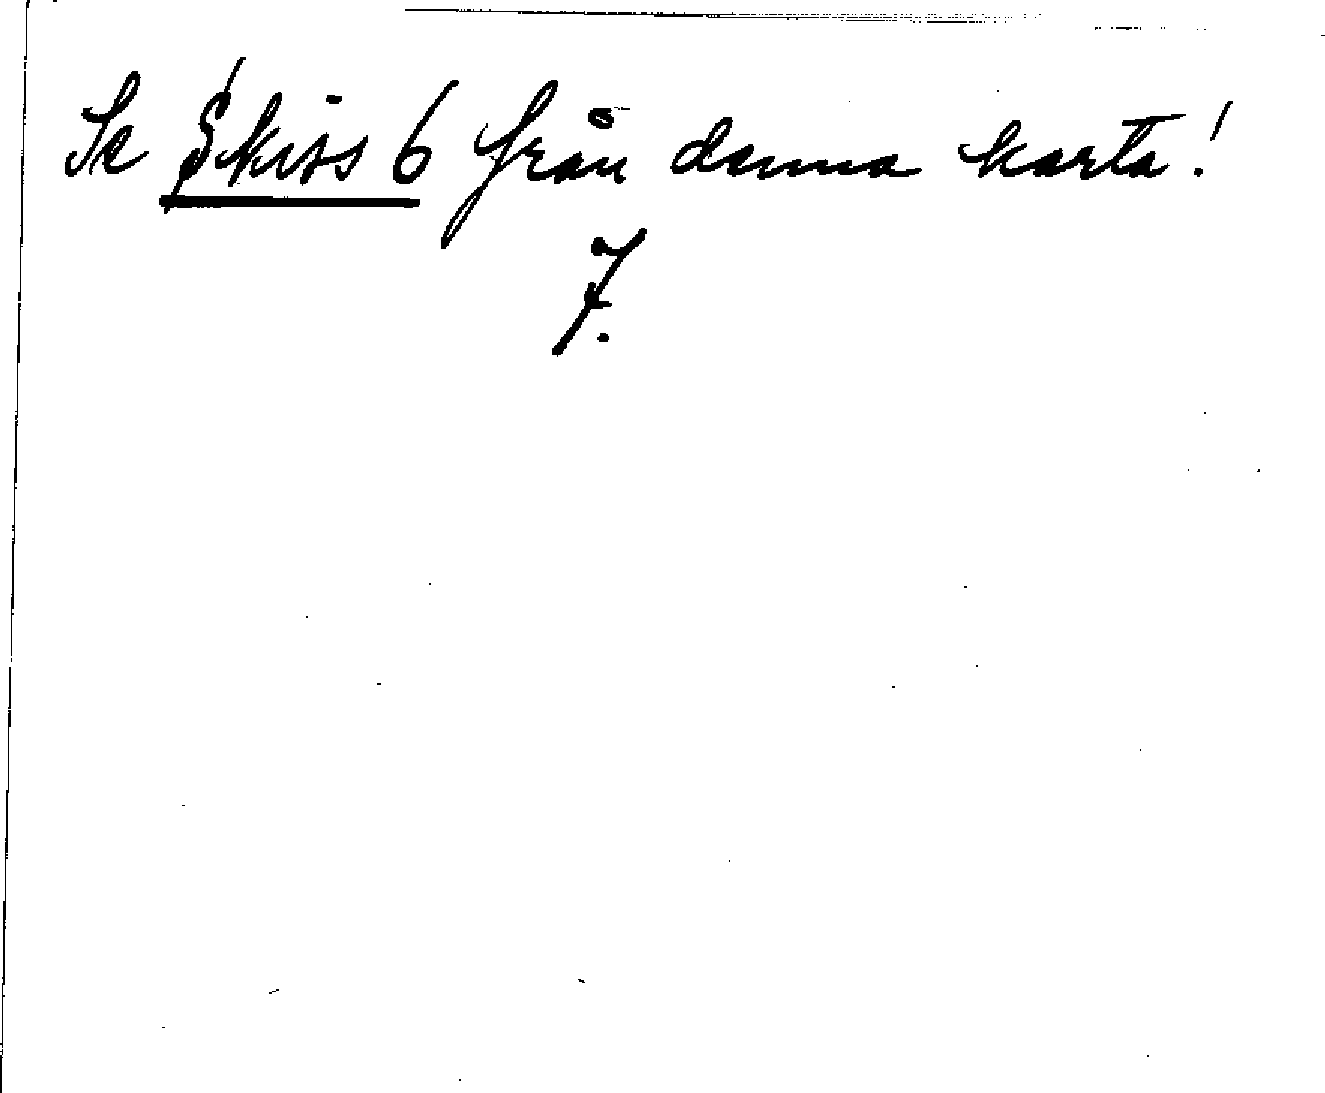 Se Skiss 6 från denna karta!
7.